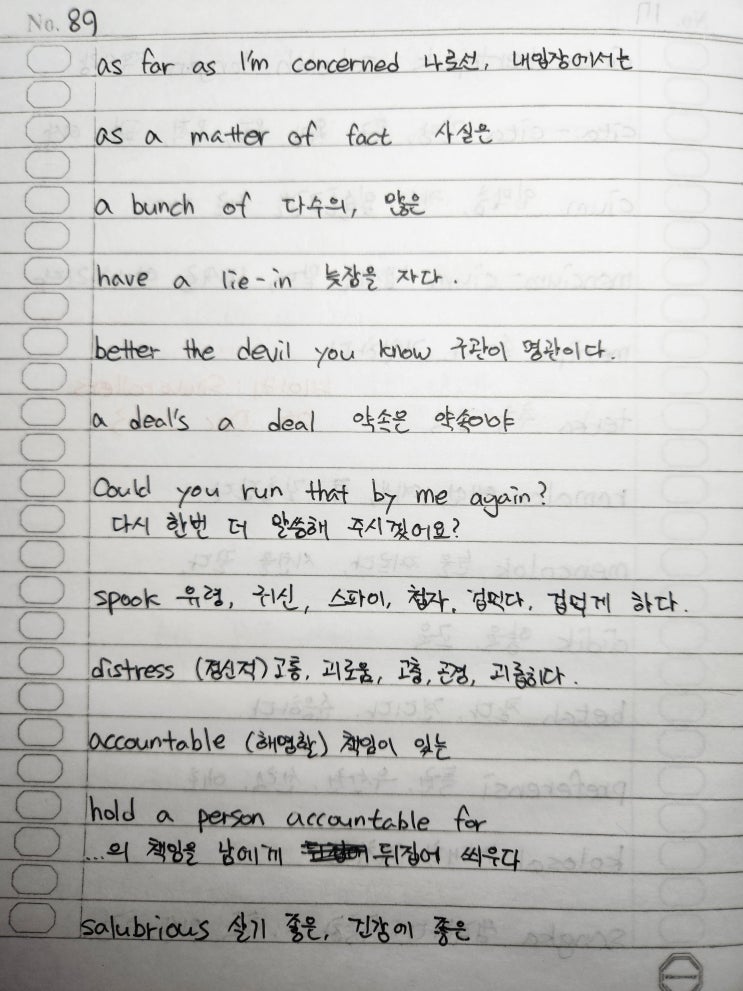 No. 89
as far as I'm concerned 나로선, 내입장에서는
as a matter of fact 사실은
a bunch of 다수의, 많은
have a lie-in 늦잠을 자다.
better the devil you know 구관이 명관이다.
a deal's a deal 약속은 약속이야
Could you run that by me again?
다시 한번 더 말씀해 주시겠어요?
spook 유령, 귀신, 스파이, 첩자, 겁먹다, 겁먹게 하다.
distress (정신적)고통, 괴로움, 고충, 곤경, 괴롭히다.
accountable (해명할) 책임이 있는
hold a person accountable for
...의 책임을 남에게 뒤집어 씌우다
salubrious 살기 좋은, 건강에 좋은